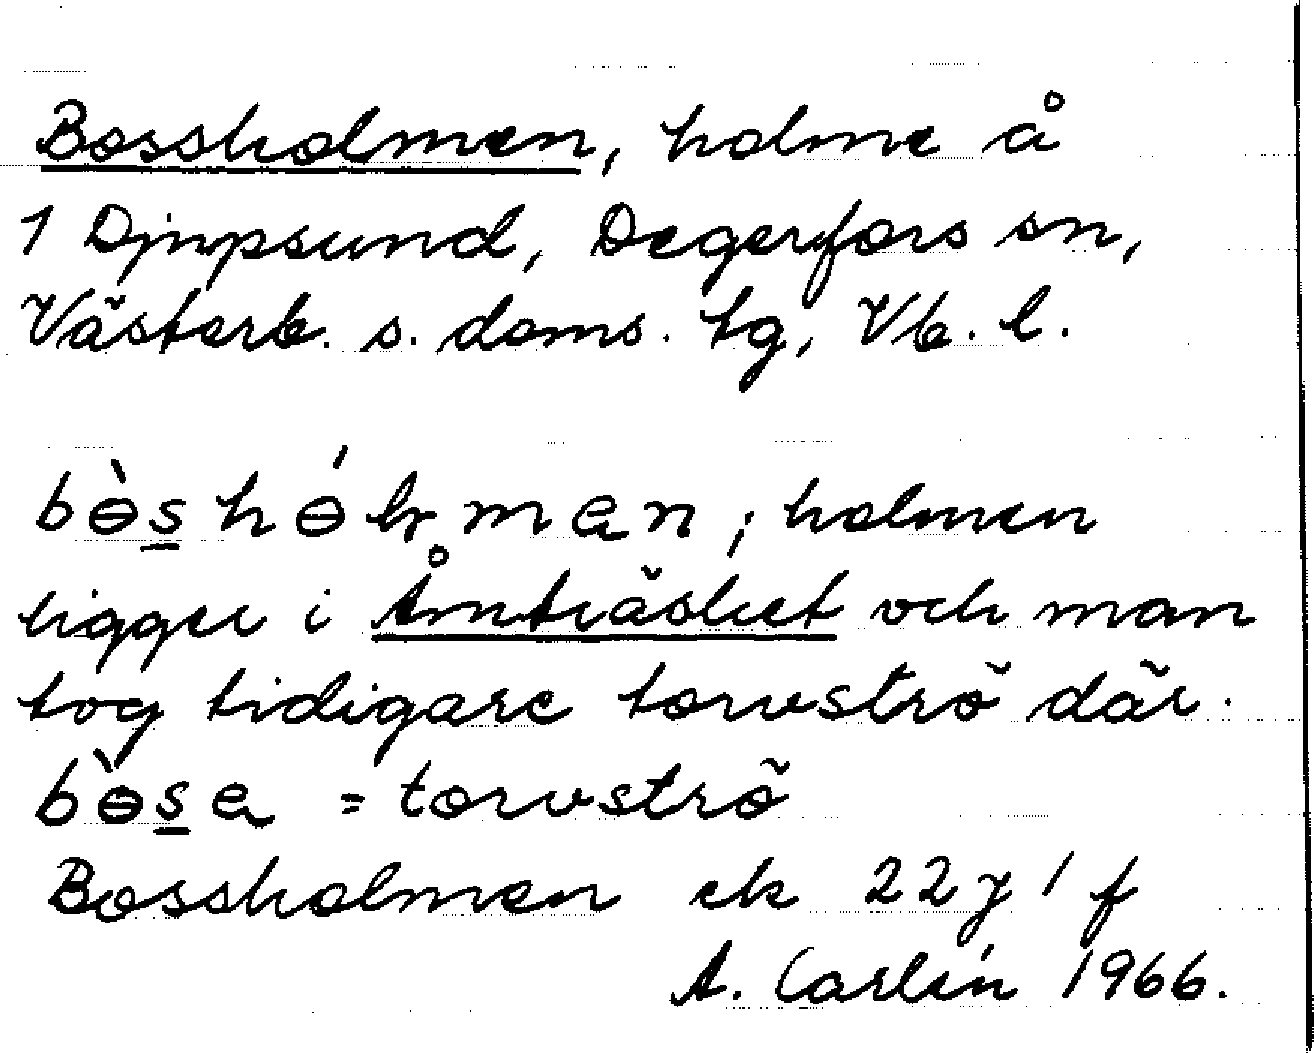 Bossholmen, holme å
1 Djupsund, Degerfors sn,
Västerb. s. doms. tg, Vb. l.
bɵ̀s̲hɵ́lman; holmen
ligger i Åmträsket och man
tog tidigare torvströ där.
bɵ̀s̲a = torvströ
Bossholmen ek 22 J 1 f
A. Carlén 1966.